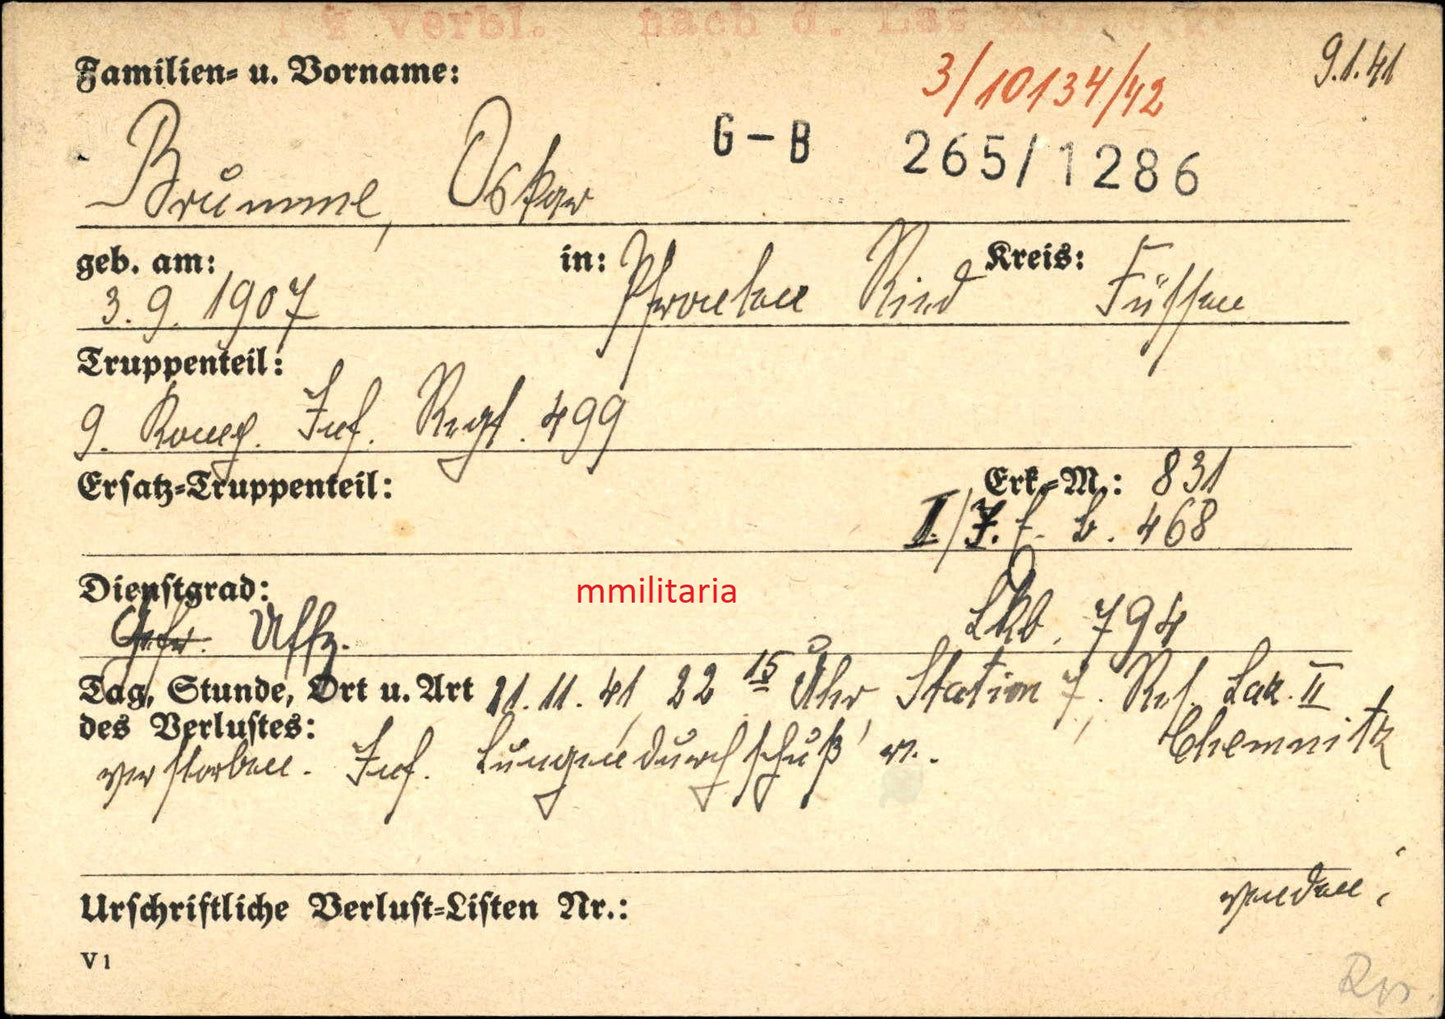 Verbl. nach d.
Familien- u. Vorname:
3/10134/42
9.1.41
G-B 265/1286
Brumme, Oskar
geb. am: in: Kreis:
3.9.1907 Pfronten Ried Füssen
Truppenteil:
9. Komp. Inf. Regt. 499
Ersatz-Truppenteil: Erk.-M.: 831
468
Dienstgrad:
Gefr. Uffz. 794
Tag, Stunde, Ort u. Art 21.11.41 22 15 Uhr Station 7, Res. Laz. II
des Verlustes: Chemnitz
verstorben. Inf. Lungendurchschuß r.
Urschriftliche Verlust-Listen Nr.:
wenden!
V 1
mmilitaria